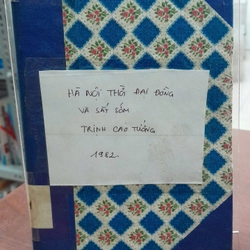 HÀ NỘI THỜI ĐẠI ĐỒNG
VÀ SẮT SỚM
TRỊNH CAO TƯỞNG
1982